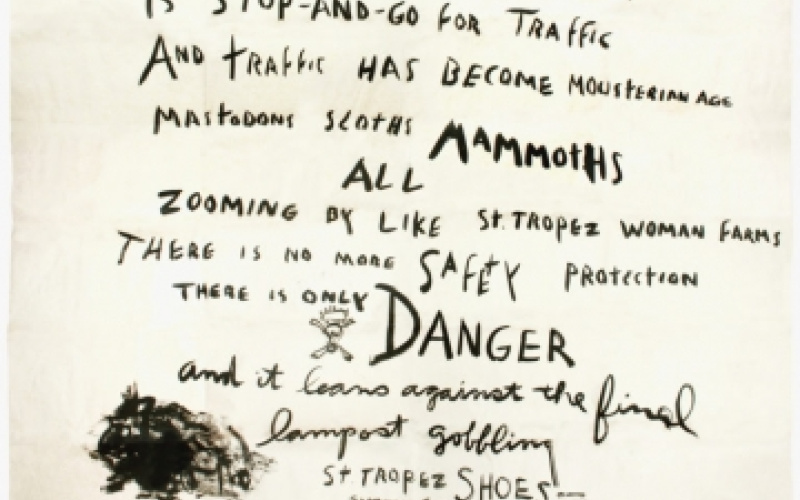 IS STOP-AND-GO FOR TRAFFIC
AND TRAFFIC HAS BECOME MOUSTERIAN AGE
MASTODONS SLOTHS MAMMOTHS
ALL
ZOOMING BY LIKE St. TROPEZ WOMAN FARMS
THERE IS NO MORE SAFETY PROTECTION
THERE IS ONLY DANGER
and it leans against the final
lampost gobbling
St. TROPEZ SHOES—